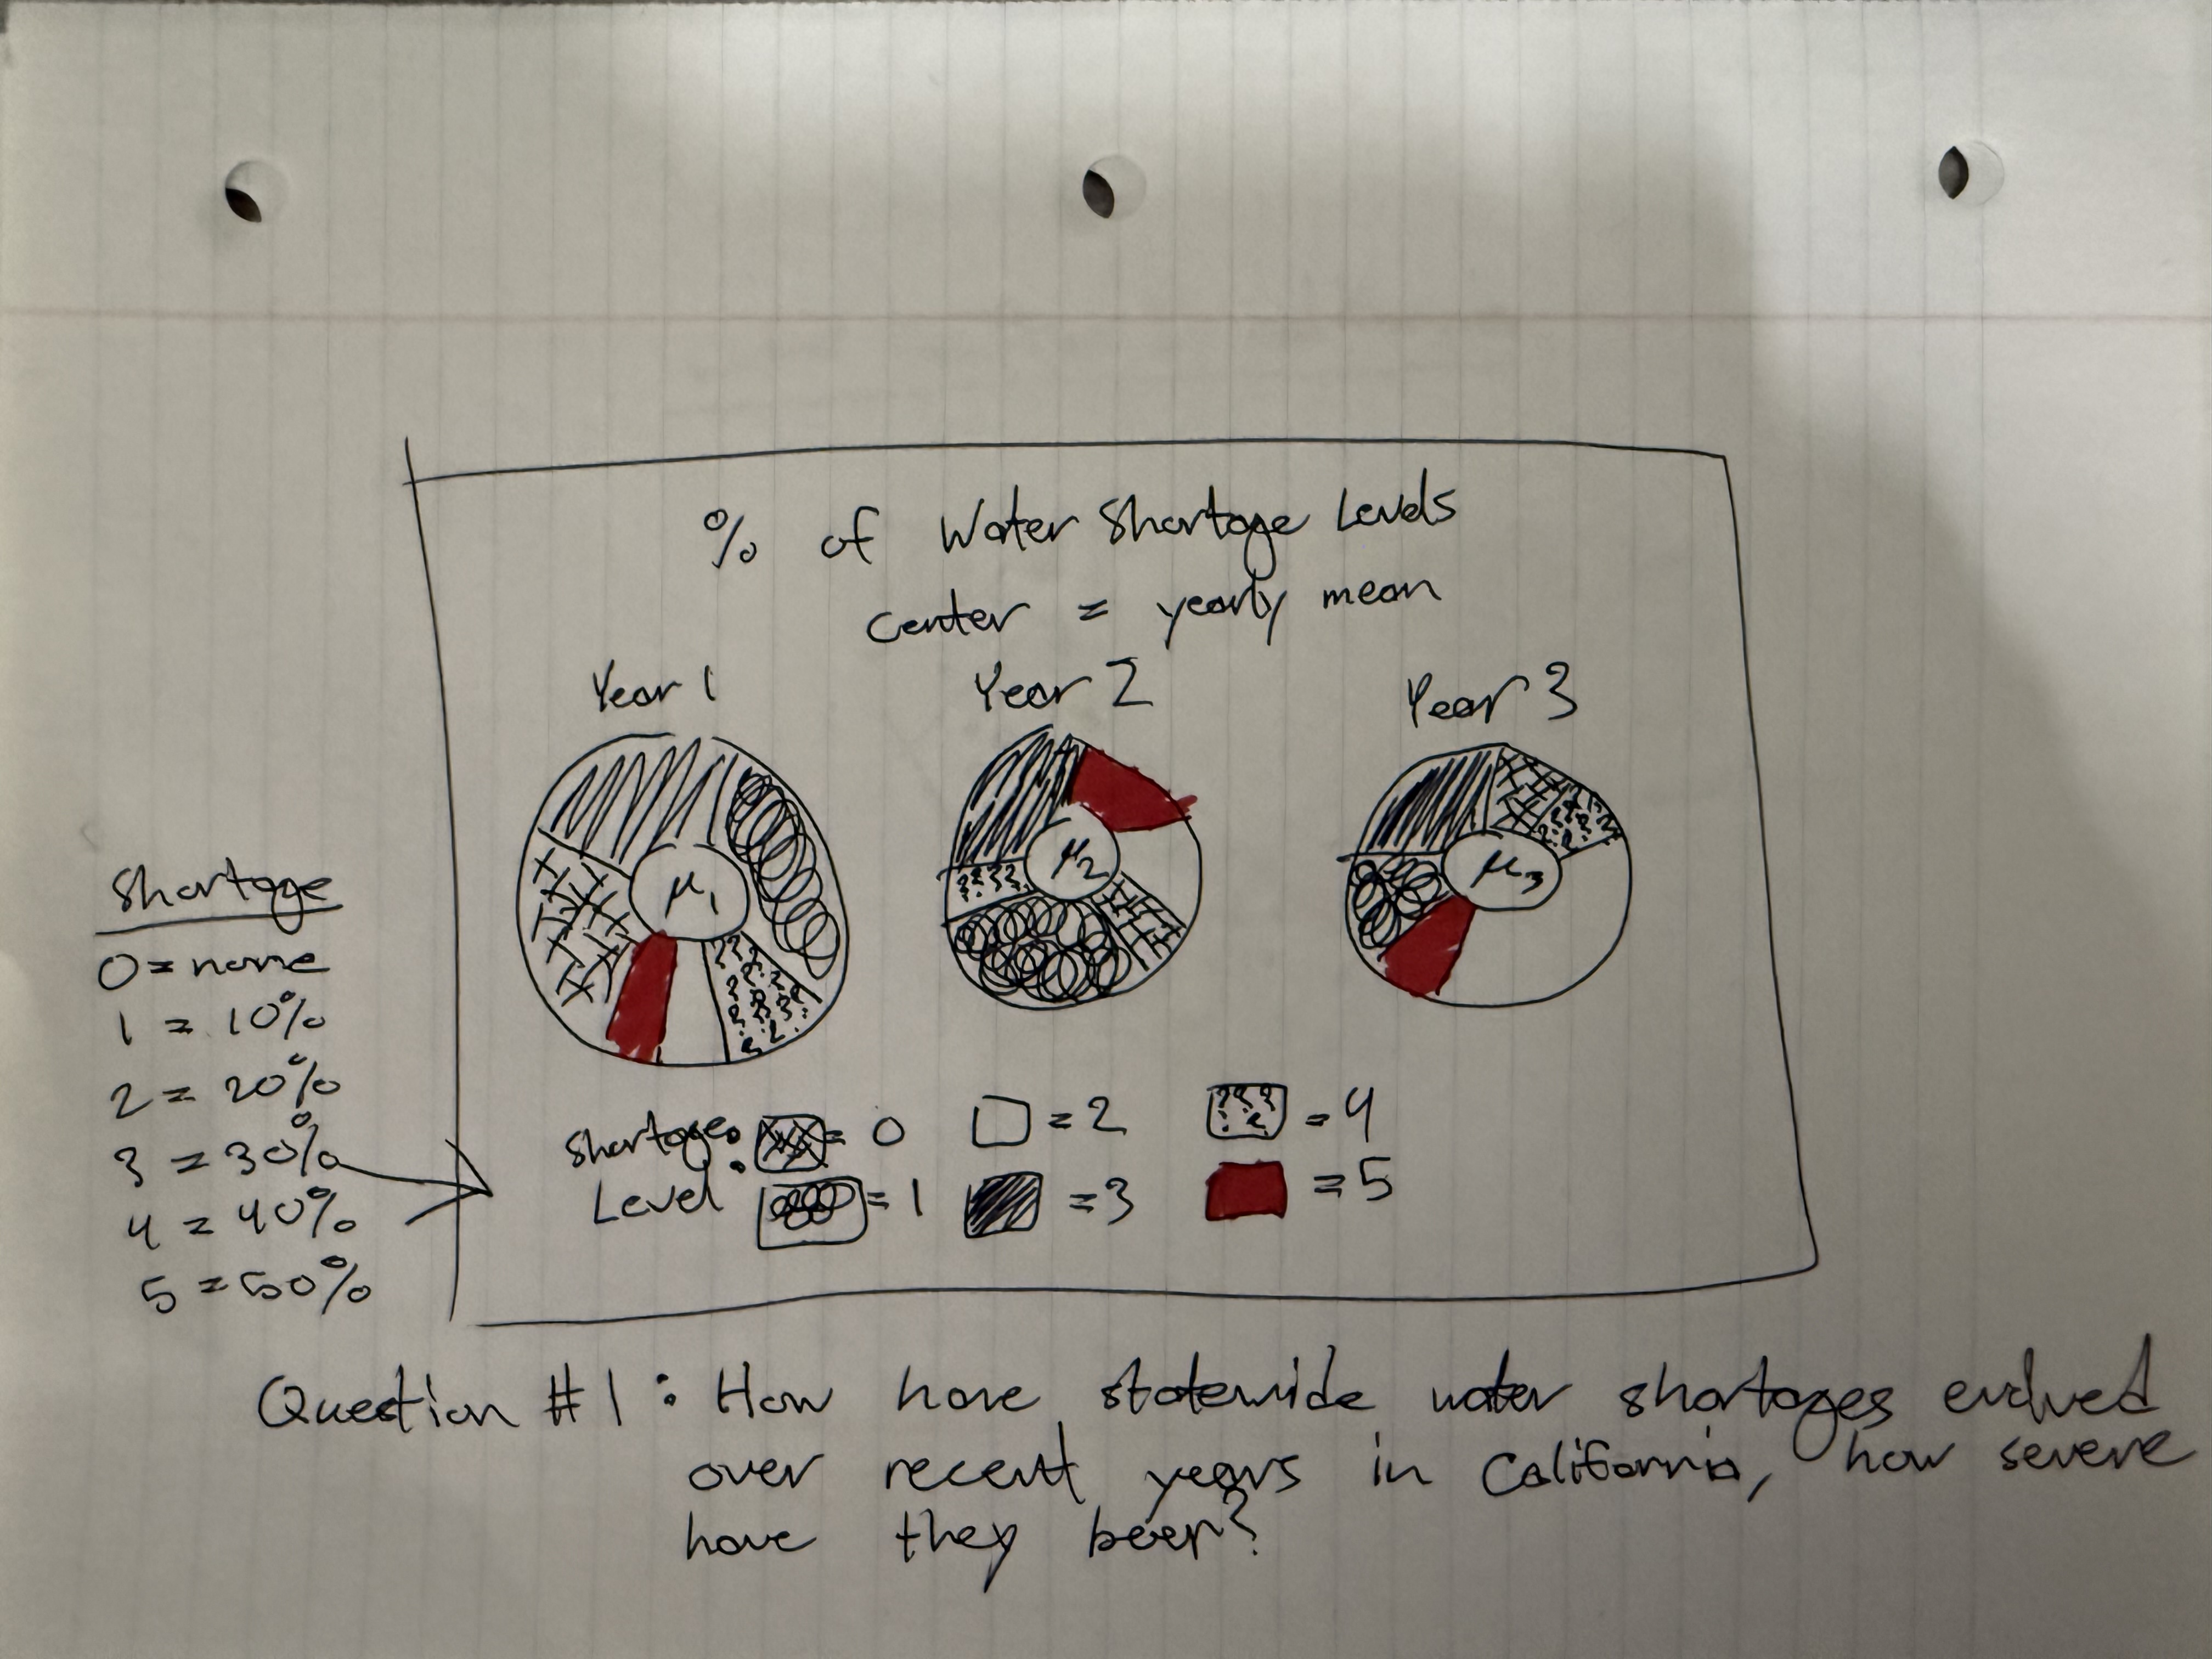 % of Water Shortage Levels
center = yearly mean
Year 1 Year 2 Year 3
μ1 μ2 μ3
Shortage
0 = none
1 = 10%
2 = 20%
3 = 30%
4 = 40%
5 = 50%
Shortage = 0 = 2 = 4
Level : = 1 = 3 = 5
Question #1: How have statewide water shortages evolved
over recent years in California, how severe
have they been?